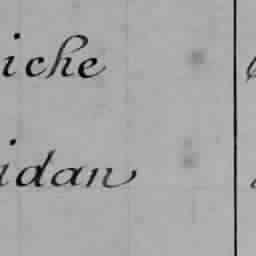 iche
idan